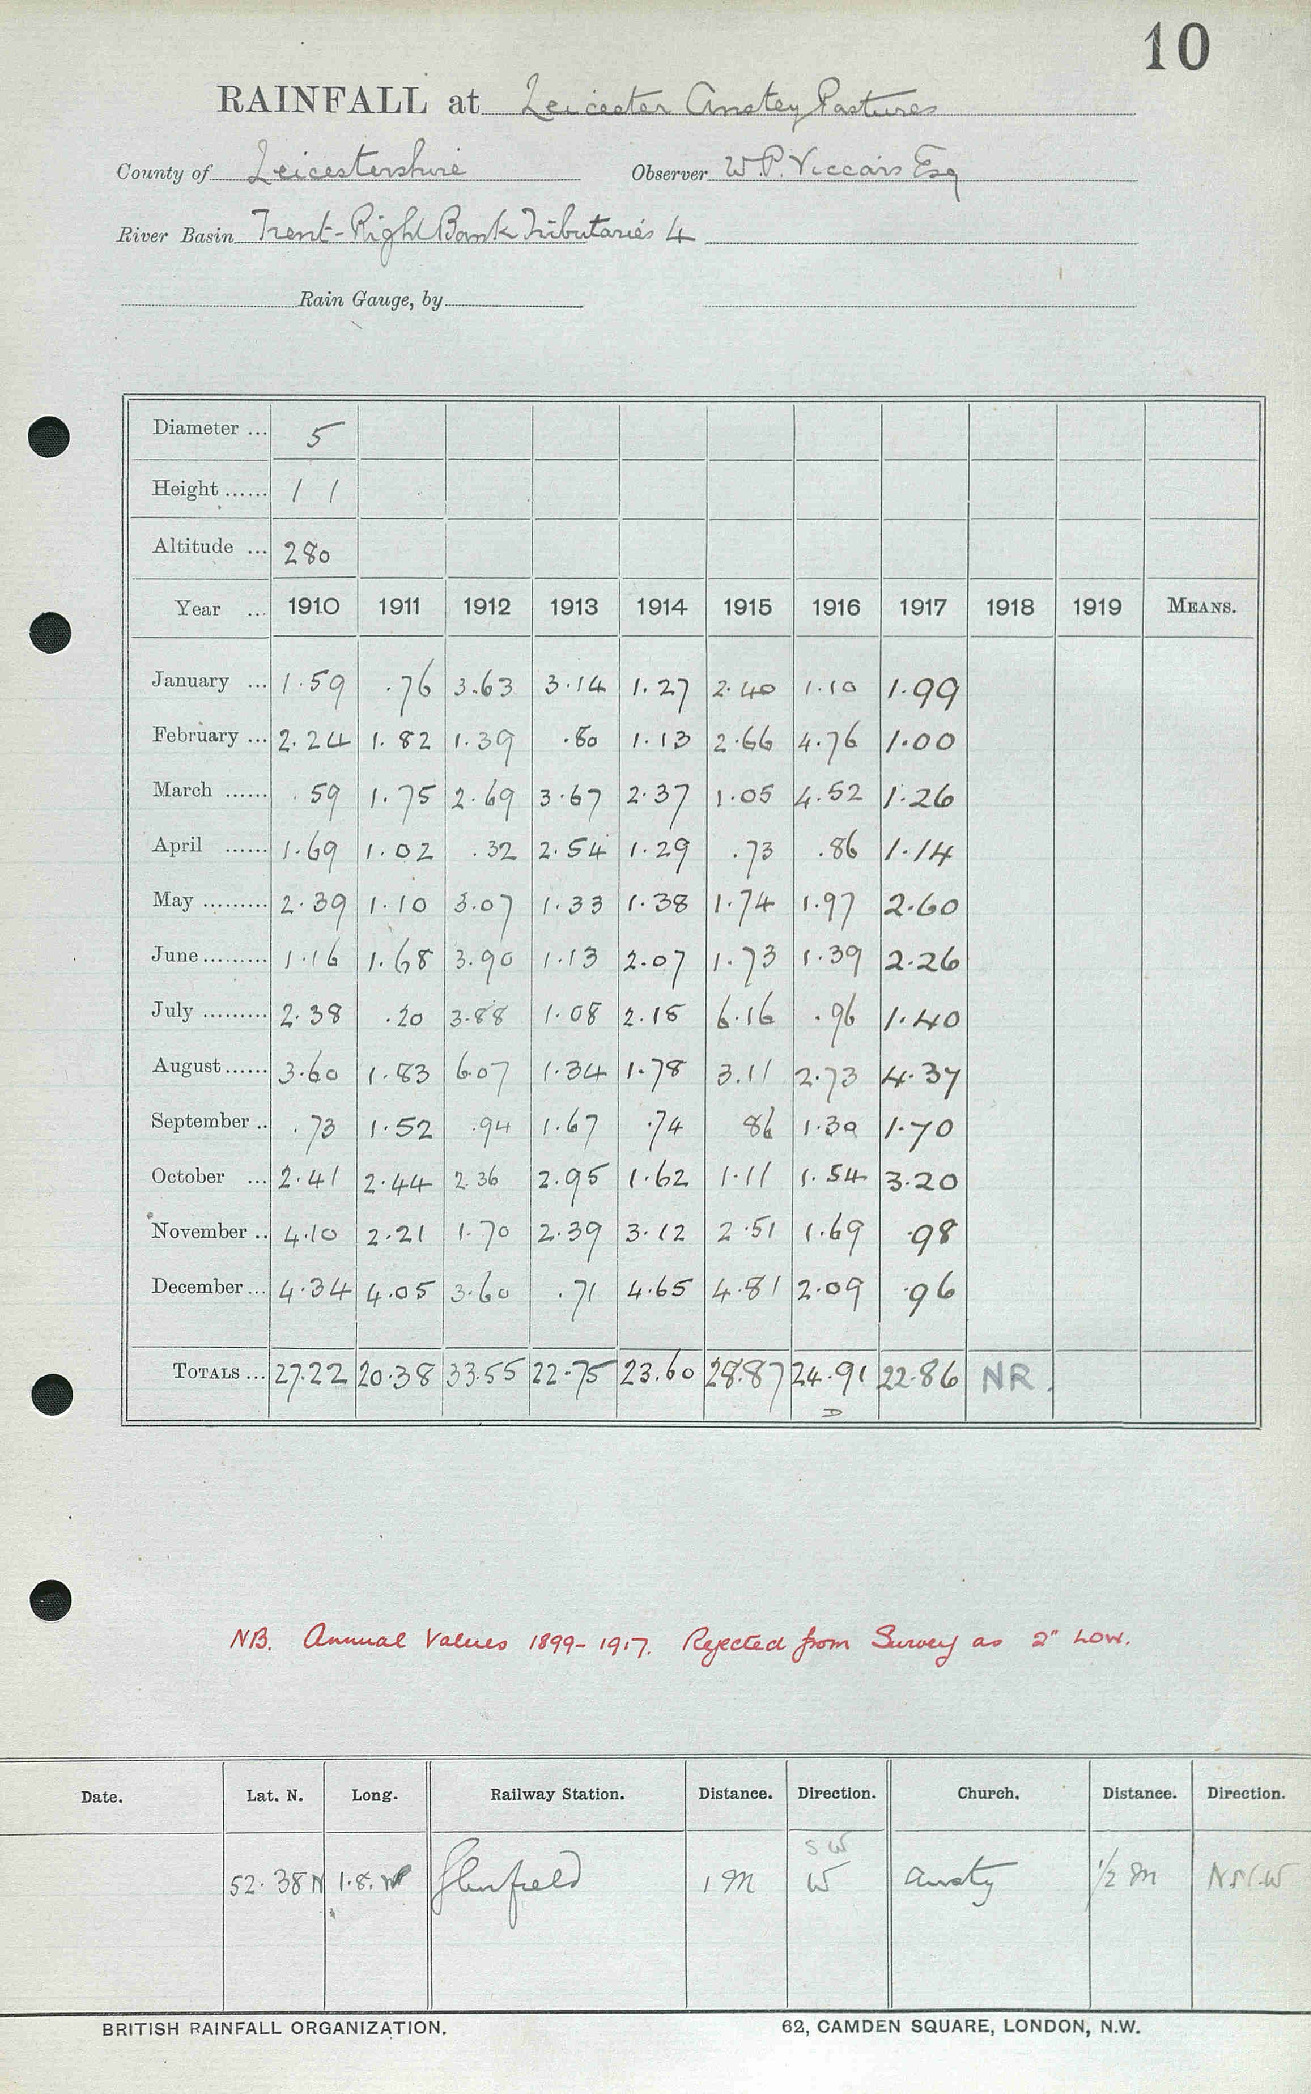 10
RAINFALL at Leicester Anstey Pastures
County of Leicestershire Observer W.P. Viccars Esq
River Basin Trent-Right Bank Tributaries 4
Rain Gauge, by
Diameter ... 5
Height ...... 1 1
Altitude ... 280
Year ... 1910 1911 1912 1913 1914 1915 1916 1917 1918 1919 MEANS.
January ... 1.59 .76 3.63 3.14 1.27 2.40 1.10 1.99
February ... 2.24 1.82 1.39 .80 1.13 2.66 4.76 1.00
March ...... .59 1.75 2.69 3.67 2.37 1.05 4.52 1.26
April ...... 1.69 1.02 .32 2.54 1.29 .73 .86 1.14
May ......... 2.39 1.10 3.07 1.33 1.38 1.74 1.97 2.60
June ......... 1.16 1.68 3.90 1.13 2.07 1.73 1.39 2.26
July ......... 2.38 .20 3.88 1.08 2.18 6.16 .96 1.40
August ...... 3.60 1.83 6.07 1.34 1.78 3.11 2.73 4.37
September .. .73 1.52 .94 1.67 .74 86 1.30 1.70
October ... 2.41 2.44 2.36 2.95 1.62 1.11 1.54 3.20
November .. 4.10 2.21 1.70 2.39 3.12 2.51 1.69 .98
December ... 4.34 4.05 3.60 .71 4.65 4.81 2.09 .96
TOTALS ... 27.22 20.38 33.55 22.75 23.60 28.87 24.91 22.86 NR.
D
NB. Annual Values 1899-1917. Rejected from Survey as 2" Low.
Date. Lat. N. Long. Railway Station. Distance. Direction. Church. Distance. Direction.
SW
52.38 N 1.8. W Glenfield 1 M W Ansty 1/2 M
BRITISH RAINFALL ORGANIZATION. 62, CAMDEN SQUARE, LONDON, N.W.